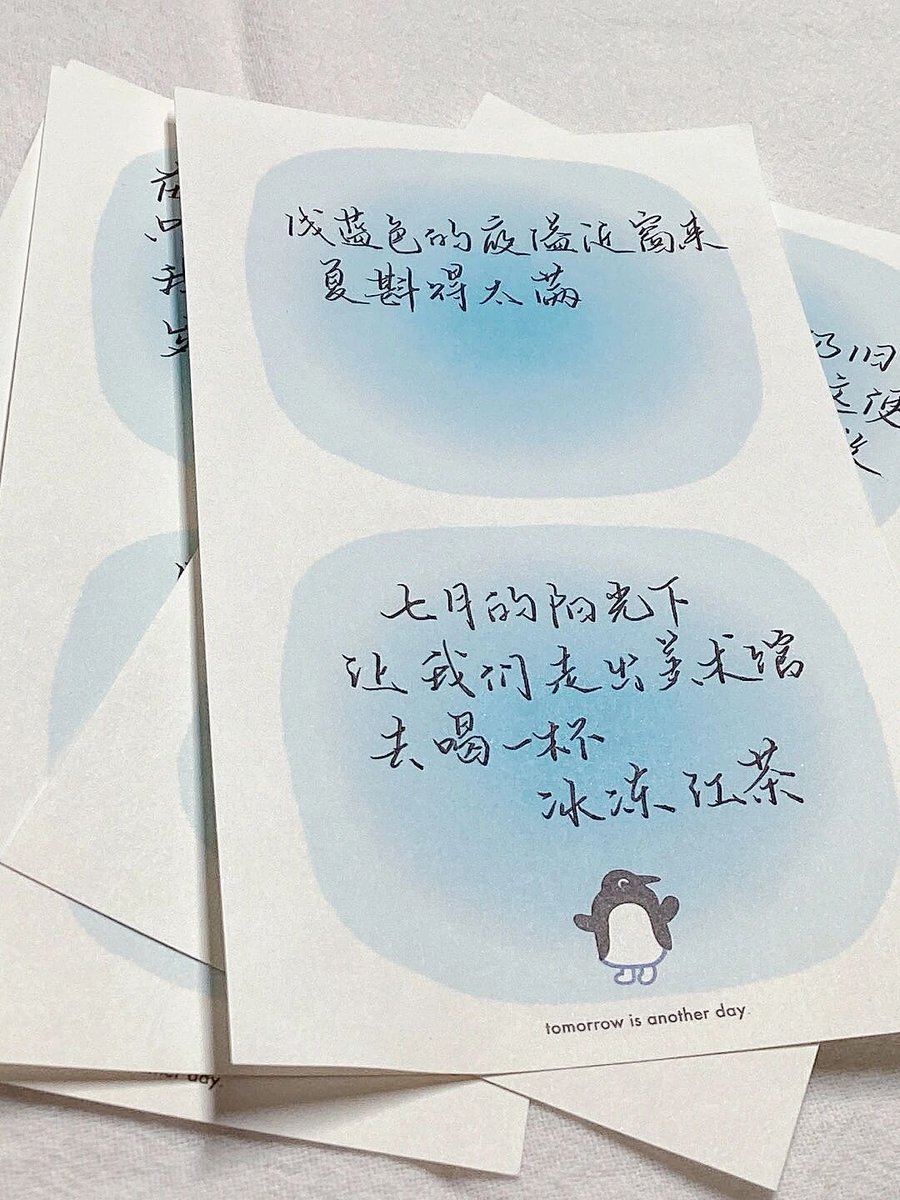 浅蓝色的夜溢进窗来
夏斟得太满
七月的阳光下
让我们走出美术馆
去喝一杯
冰冻红茶
tomorrow is another day.
仍旧
这便
day.